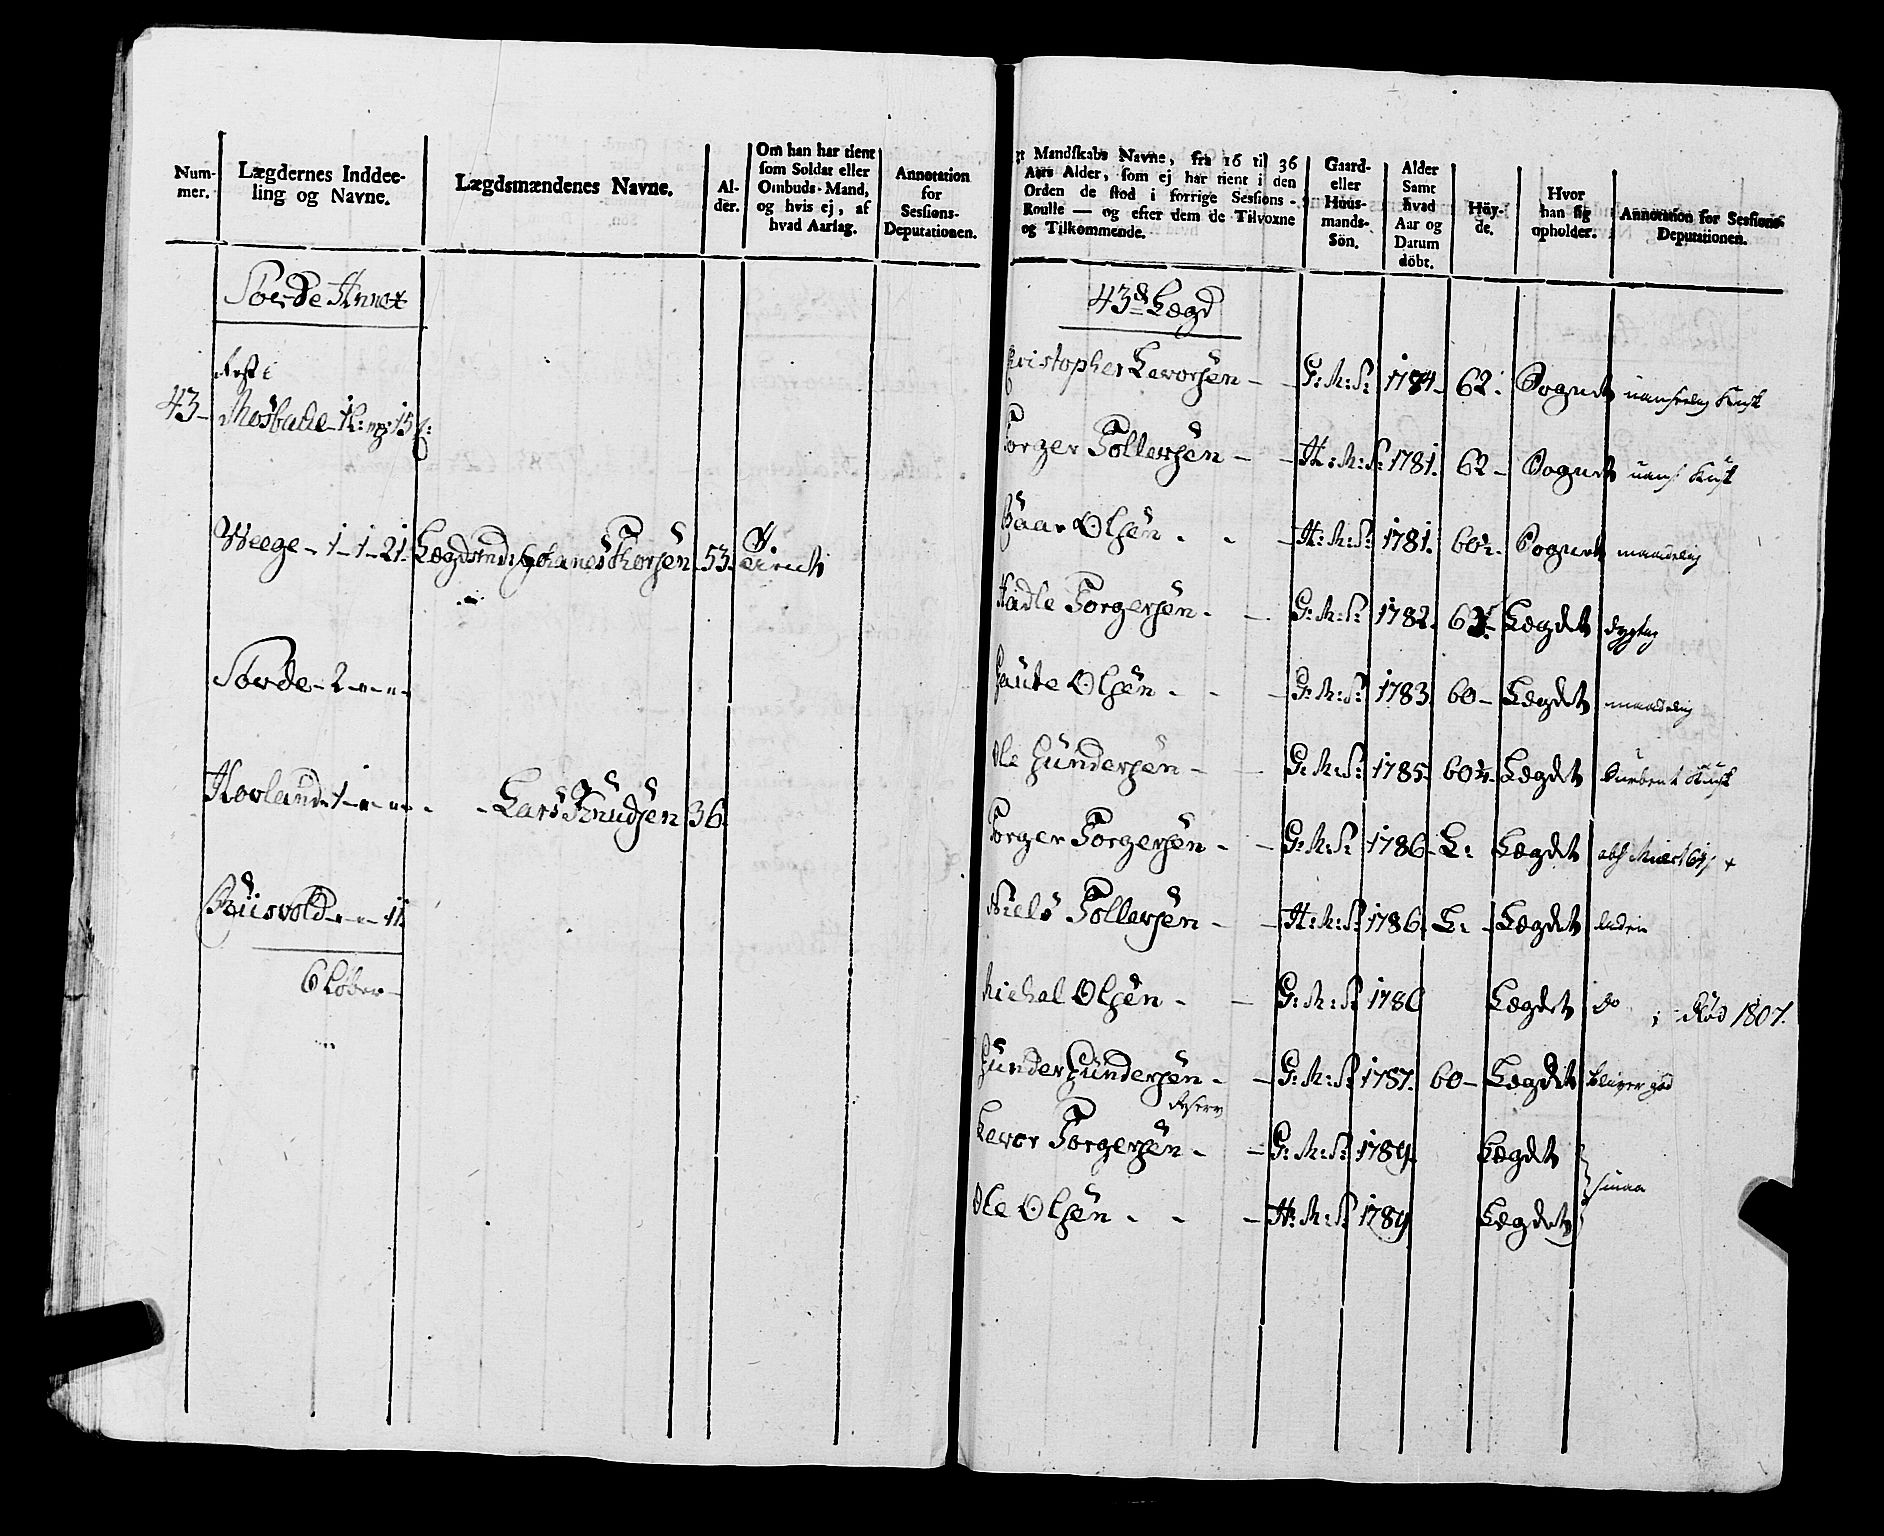 Num-
mer.
Lægdernes Inddee-
ling og Navne.
Lægdsmændenes Navne.
Al-
der.
Om han har tient
som Soldat eller
Ombuds-Mand,
og hvis ej, af
hvad Aarsag.
Annotation
for
Sessions-
Deputationen.
Torde Annex
43-
Weege - 1 - 1 - 21.
53.
Torde - 2 - " - "
Hovland - 1 - " - "
- Lars Knudsen 36.
6 Løber -
Mandskabs Navne, fra 16 til 36
Aars Alder, som ej har tient i den
Orden de stod i forrige Sessions-
Roulle — og efter dem de Tilvoxne
og Tilkommende.
Gaard-
eller
Huus-
mands-
Søn.
Alder
Samt
hvad
Aar og
Datum
døbt.
Høy-
de.
Hvor
han sig
opholder.
Annotation for Sessions-
Deputationen.
43de Lægd
Christopher Levorsen - - G: M: S: 1784 - 62. Sognet
Torger Tollevsen - - H: M: S: 1781. 62 - Sognet
Olsen - - - H: M: S: 1781. Sognet
Hadle Torgersen - - G: M: S: 1782. Lægdet dygtig
Gaute Olsen - - - G: M: S: 1783. 60 - Lægdet
Ole Gundersen - - G: M: S: 1785. Lægdet
Torger Torgersen - - G: M: S: 1786 - L: Lægdet
Niels Tollevsen - - H: M: S: 1786. L: - Lægdet
Michal Olsen - - G: M: S: 1786 Lægdet do død 1807.
Gunder Gundersen - - G: M: S: 1787. 60 - Lægdet bliver god
Reserv
Levor Torgersen - - G: M: S: 1789. Lægdet
smaa
Ole Olsen - - - H: M: S: 1789 Lægdet